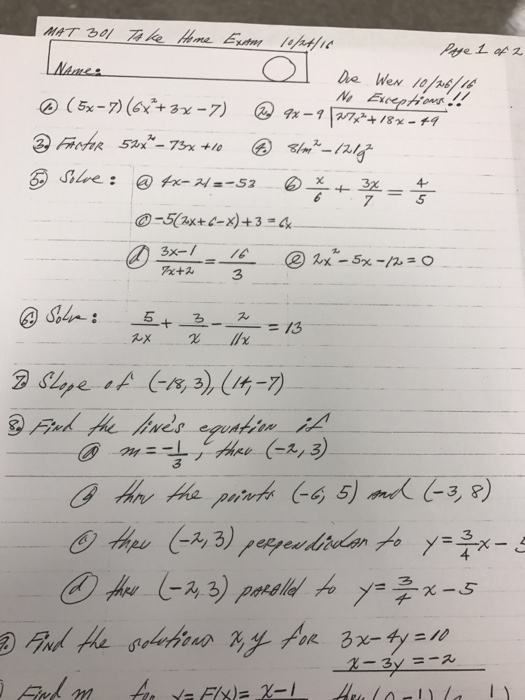 MAT 301 Take Home Exam 10/24/16 Page 1 of 2
Name:
Due Wen 10/26/16
No Exceptions!!
① (5x-7)(6x²+3x-7) ② 9x-9 | 27x²+18x-49
③ Factor 52x²-73x+10 ④ 81m²-121g²
⑤ Solve: ⓐ 4x-21=-53 ⓑ x/6 + 3x/7 = 4/5
ⓒ -5(2x+6-x)+3=6x
ⓓ (3x-1)/(7x+2) = 16/3 ⓔ 2x²-5x-12=0
⑥ Solve: 5/2x + 3/x - 2/11x = 13
⑦ Slope of (-18,3), (14,-7)
⑧ Find the line's equation if
ⓐ m=-1/3, thru (-2,3)
ⓑ thru the points (-6,5) and (-3,8)
ⓒ thru (-2,3) perpendicular to y=3/4x-5
ⓓ thru (-2,3) parallel to y=3/4x-5
⑨ Find the solutions x,y for 3x-4y=10
x-3y=-2
Find m for y=F(x)= x-1 thru